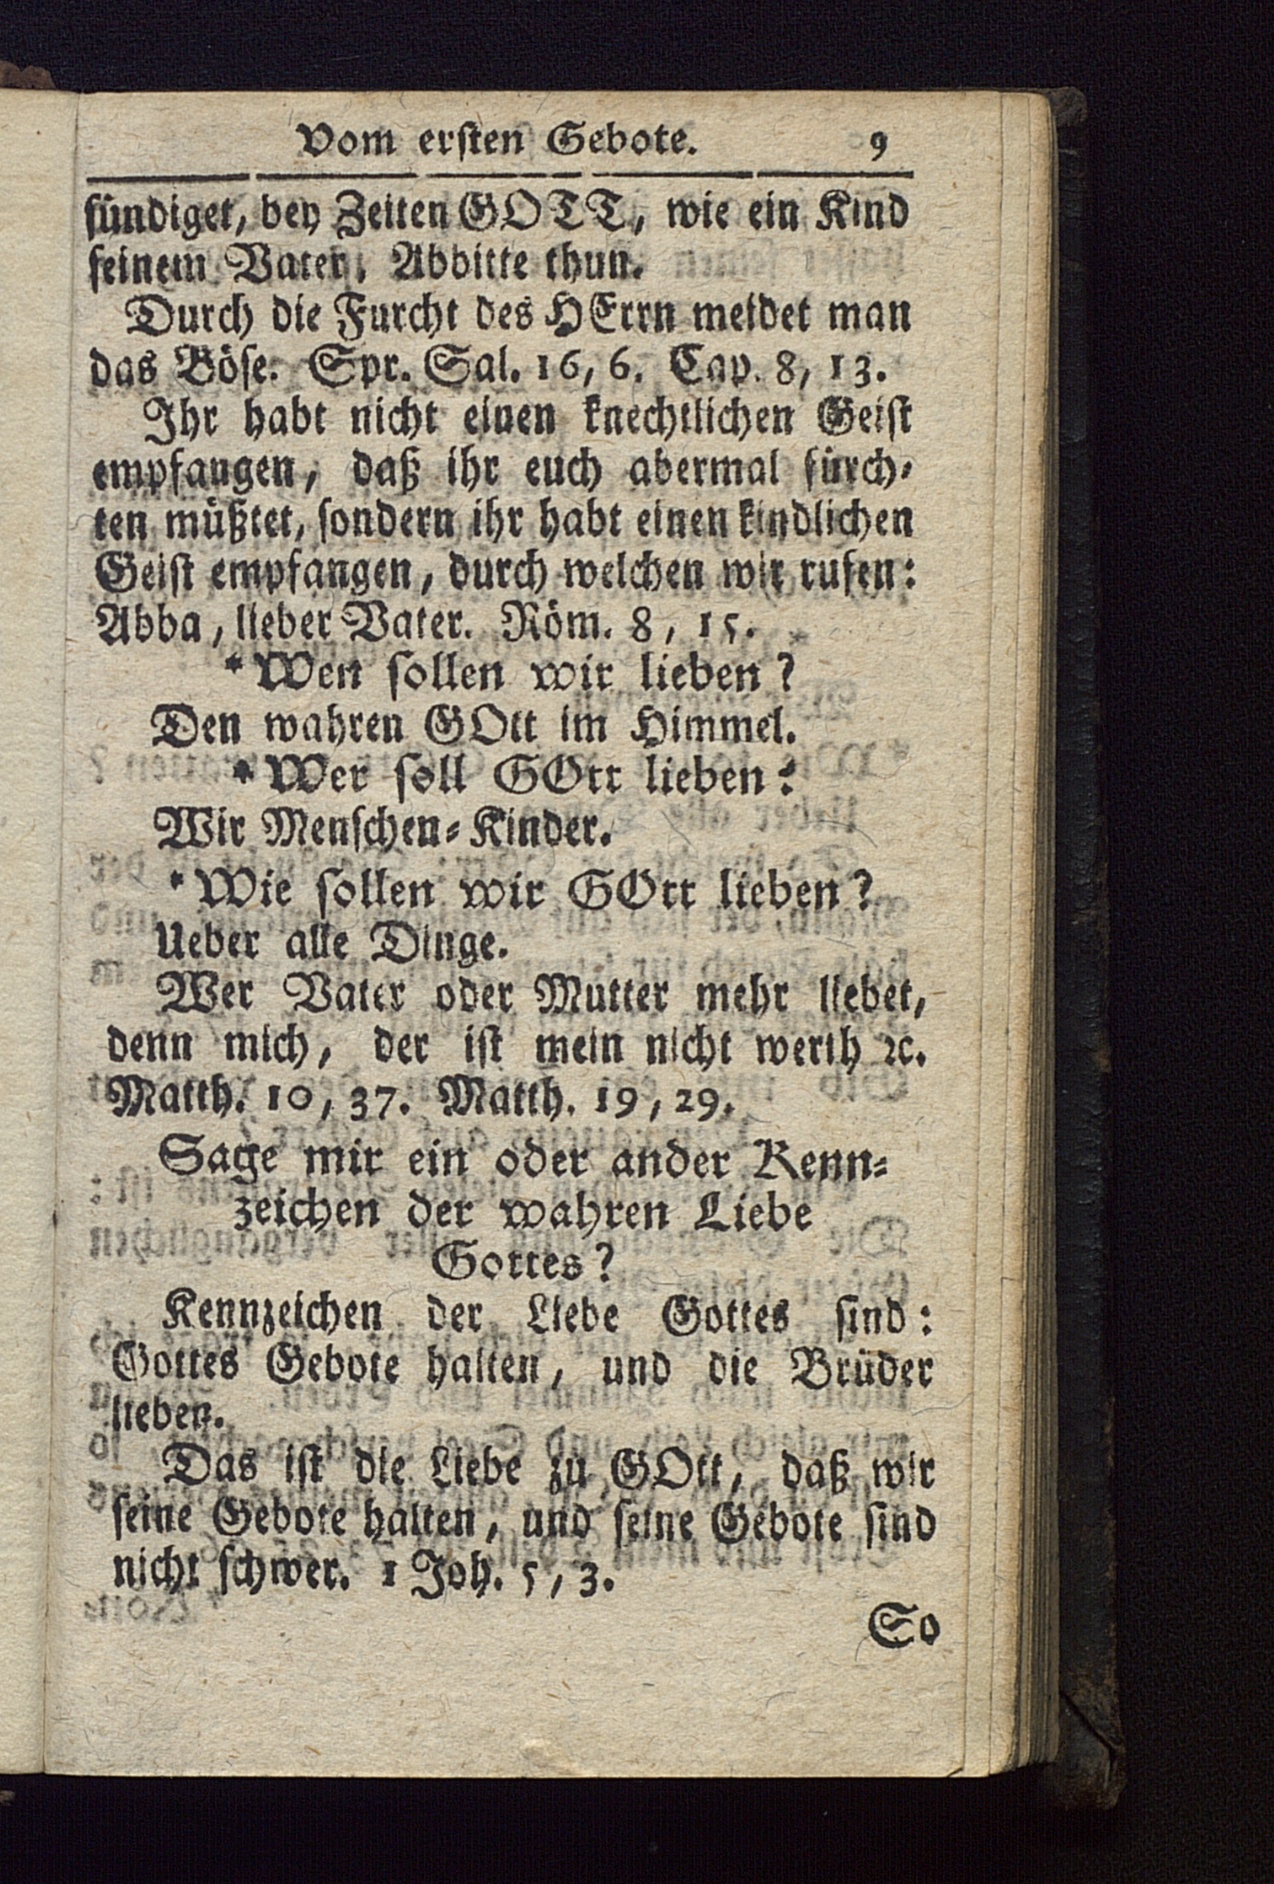 Vom ersten Gebote. 9
sündiget, bey Zeiten GOTT, wie ein Kind
seinem Vater, Abbitte thun.
Durch die Furcht des HErrn meidet man
das Böse. Spr. Sal. 16, 6. Cap. 8, 13.
Ihr habt nicht einen knechtlichen Geist
empfangen, daß ihr euch abermal fürch-
ten müßtet, sondern ihr habt einen kindlichen
Geist empfangen, durch welchen wir rufen:
Abba, lieber Vater. Röm. 8, 15.
*Wen sollen wir lieben?
Den wahren GOtt im Himmel.
*Wer soll GOtt lieben?
Wir Menschen-Kinder.
*Wie sollen wir GOtt lieben?
Ueber alle Dinge.
Wer Vater oder Mutter mehr liebet,
denn mich, der ist mein nicht werth ꝛc.
Matth. 10, 37. Matth. 19, 29.
Sage mir ein oder ander Kenn-
zeichen der wahren Liebe
Gottes?
Kennzeichen der Liebe Gottes sind:
Gottes Gebote halten, und die Brüder
lieben.
Das ist die Liebe zu GOtt, daß wir
seine Gebote halten, und seine Gebote sind
nicht schwer. 1 Joh. 5, 3.
So